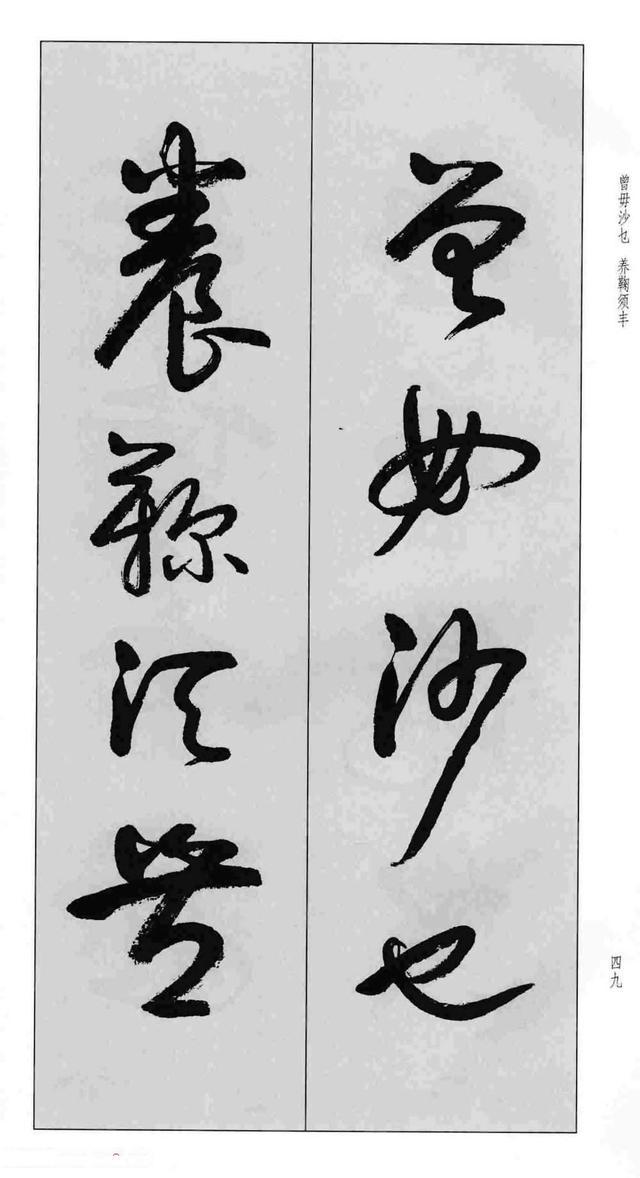 曾毋沙乜 养鞠须丰
四九
曾毋沙乜
養鞠須豐